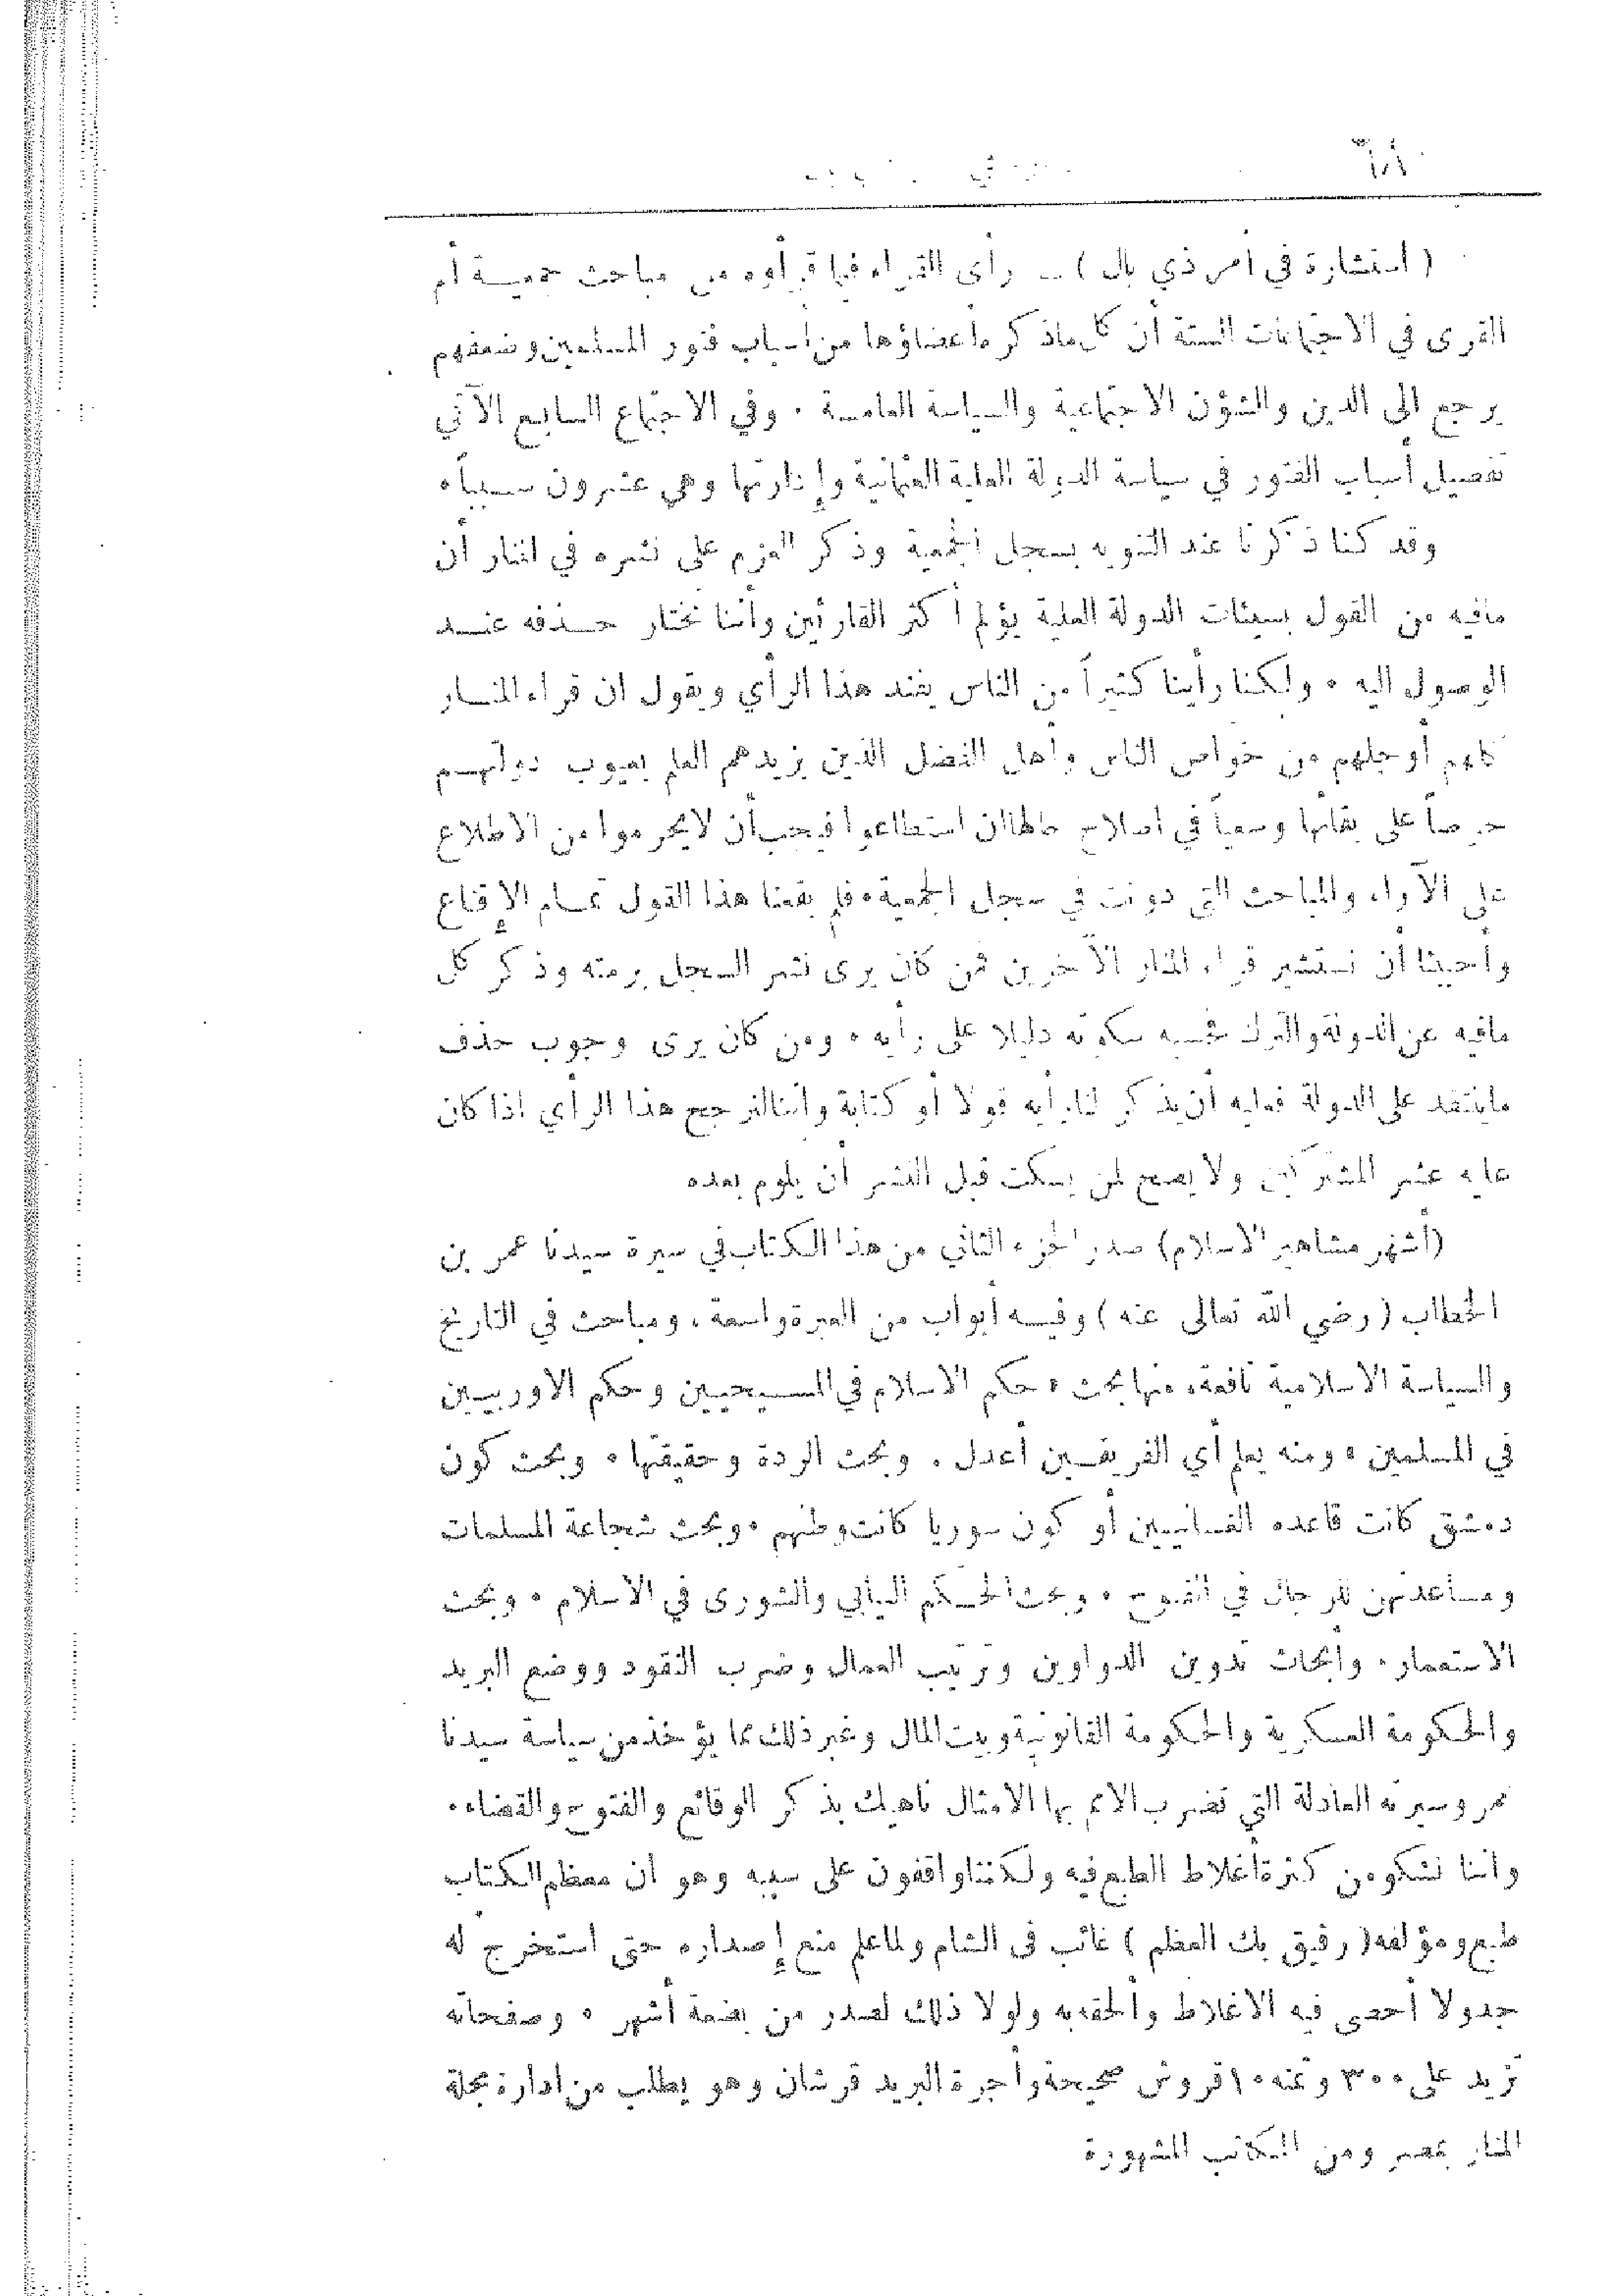 ( استشارة في أمر ذي بال ) ــ رأى القراء فيما قرأوه من مباحث جمعية أم
القرى في الاجتماعات الستة أن كل ماذكره أعضاؤها من أسباب فتور المسلمين وضعفهم
يرجع الى الدين والشؤن الاجتماعية والسياسة العامة . وفي الاجتماع السابع الآتي
تفصيل أسباب الفتور في سياسة الدولة العلية العثمانية وإدارتها وهي عشرون سبباً ٠
وقد كنا ذكرنا عند التنويه بسجل الجمعية وذكر العزم على نشره في المنار أن
مافيه من القول بسيئات الدولة العلية يؤلم أكثر القارئين وأننا نختار حذفه عند
الوصول اليه ٠ ولكنا رأينا كثيراً من الناس يفند هذا الرأي ويقول ان قراء المنار
كلهم أو جلهم من خواص الناس وأهل الفضل الذين يزيدهم العلم بعيوب دولتهم
حرصاً على بقائها وسعياً في اصلاح حالها ان استطاعوا فيجب أن لا يحرموا من الاطلاع
على الآراء والمباحث التي دونت في سجل الجمعية ٠ فلم يقنعنا هذا القول تمام الإقناع
وأحببنا أن نستشير قراء المنار الآخرين فمن كان يرى نشر السجل برمته وذكر كل
مافيه عن الدولة والترك فحسبه سكوته دليلا على رأيه ٠ ومن كان يرى وجوب حذف
ماينتقد على الدولة فعليه أن يذكر لنا رأيه قولا أو كتابة واننا لنرجح هذا الرأي اذا كان
عليه عشر المشتركين ولا يصح لمن يسكت قبل النشر أن يلوم بعده
(أشهر مشاهير الاسلام) صدر الجزء الثاني من هذا الكتاب في سيرة سيدنا عمر بن
الخطاب ( رضي الله تعالى عنه ) وفيه أبواب من العبرة واسعة ، ومباحث في التاريخ
والسياسة الاسلامية نافعة، منها بحث ٠ حكم الاسلام في المسيحيين وحكم الاوربيين
في المسلمين ٠ ومنه يعلم أي الفريقين أعدل . وبحث الردة وحقيقتها ٠ وبحث كون
دمشق كانت قاعدة الغسانيين أو كون سوريا كانت وطنهم ٠ وبحث شجاعة المسلمات
ومساعدتهن للرجال في الفتوح ٠ وبحث الحكم النيابي والشورى في الاسلام ٠ وبحث
الاستعمار ٠ وأبحاث تدوين الدواوين وترتيب العمال وضرب النقود ووضع البريد
والحكومة العسكرية والحكومة القانونية وبيت المال وغير ذلك مما يؤخذ من سياسة سيدنا
عمر وسيرته العادلة التي تضرب الامم بها الامثال ناهيك بذكر الوقائع والفتوح والقضاء ٠
واننا نشكو من كثرة أغلاط الطبع فيه ولكننا واقفون على سببه وهو ان معظم الكتاب
طبع ومؤلفه ( رفيق بك العظم ) غائب في الشام ولما علم منع إصداره حتى استخرج له
جدولا أحصى فيه الاغلاط وألحقه به ولولا ذلك لصدر من بضعة أشهر ٠ وصفحاته
تزيد على ٣٠٠ وثمنه ١٠ قروش صحيحة وأجرة البريد قرشان وهو يطلب من ادارة مجلة
المنار بمصر ومن المكاتب المشهورة